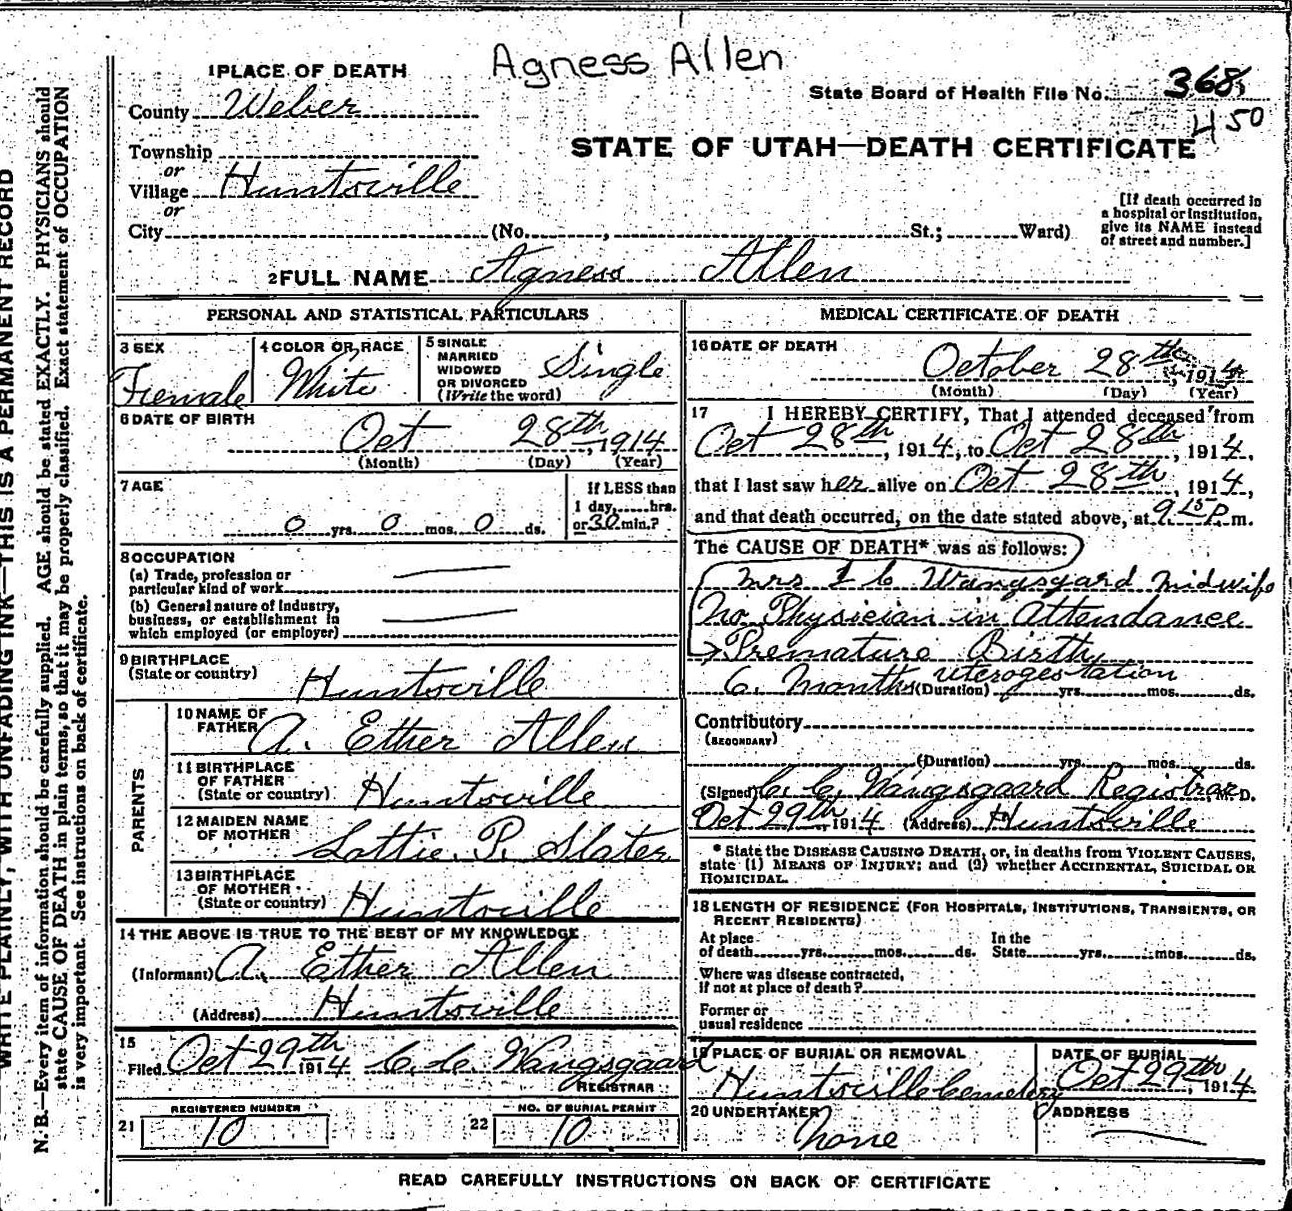 Agness Allen
1 PLACE OF DEATH
County Weber
State Board of Health File No. 368
450
Township
or
Village Huntsville
or
City (No. , St.; Ward)
STATE OF UTAH—DEATH CERTIFICATE
[If death occurred in
a hospital or institution,
give its NAME instead
of street and number.]
2 FULL NAME Agness Allen
PERSONAL AND STATISTICAL PARTICULARS
3 SEX
Female
4 COLOR OR RACE
White
5 SINGLE
MARRIED
WIDOWED
OR DIVORCED
(Write the word)
Single
6 DATE OF BIRTH
Oct 28th, 1914
(Month) (Day) (Year)
7 AGE
0 yrs. 0 mos. 0 ds.
If LESS than
1 day, hrs.
or 30 min.?
8 OCCUPATION
(a) Trade, profession or
particular kind of work
(b) General nature of Industry,
business, or establishment in
which employed (or employer)
9 BIRTHPLACE
(State or country)
Huntsville
PARENTS
10 NAME OF
FATHER A. Ether Allen
11 BIRTHPLACE
OF FATHER
(State or country) Huntsville
12 MAIDEN NAME
OF MOTHER Lottie P. Slater
13 BIRTHPLACE
OF MOTHER
(State or country) Huntsville
14 THE ABOVE IS TRUE TO THE BEST OF MY KNOWLEDGE
(Informant) A. Ether Allen
(Address) Huntsville
15
Filed Oct 29th 1914 C. C. Wangsgaard
REGISTRAR
21 REGISTERED NUMBER
10
22 NO. OF BURIAL PERMIT
10
MEDICAL CERTIFICATE OF DEATH
16 DATE OF DEATH
October 28th, 1914
(Month) (Day) (Year)
17 I HEREBY CERTIFY, That I attended deceased from
Oct 28th, 1914, to Oct 28th, 1914,
that I last saw her alive on Oct 28th, 1914,
and that death occurred, on the date stated above, at 9 15 P. m.
The CAUSE OF DEATH* was as follows:
Mrs Wangsgard midwife
No Physician in Attendance
Premature Birth
6 Months uterogestation
(Duration) yrs. mos. ds.
Contributory
(SECONDARY)
(Duration) yrs. mos. ds.
(Signed) C. C. Wangsgaard Registrar M. D.
Oct 29th, 1914 (Address) Huntsville
* State the DISEASE CAUSING DEATH, or, in deaths from VIOLENT CAUSES,
state (1) MEANS OF INJURY; and (2) whether ACCIDENTAL, SUICIDAL OR
HOMICIDAL.
18 LENGTH OF RESIDENCE (FOR HOSPITALS, INSTITUTIONS, TRANSIENTS, OR
RECENT RESIDENTS)
At place
of death yrs. mos. ds. In the
State yrs. mos. ds.
Where was disease contracted,
If not at place of death?
Former or
usual residence
19 PLACE OF BURIAL OR REMOVAL
Huntsville Cemetery
DATE OF BURIAL
Oct 29th, 1914
20 UNDERTAKER
None
ADDRESS
READ CAREFULLY INSTRUCTIONS ON BACK OF CERTIFICATE
WRITE PLAINLY, WITH UNFADING INK—THIS IS A PERMANENT RECORD
N. B.—Every item of information should be carefully supplied. AGE should be stated EXACTLY. PHYSICIANS should
state CAUSE OF DEATH in plain terms, so that it may be properly classified. Exact statement of OCCUPATION
is very important. See instructions on back of certificate.